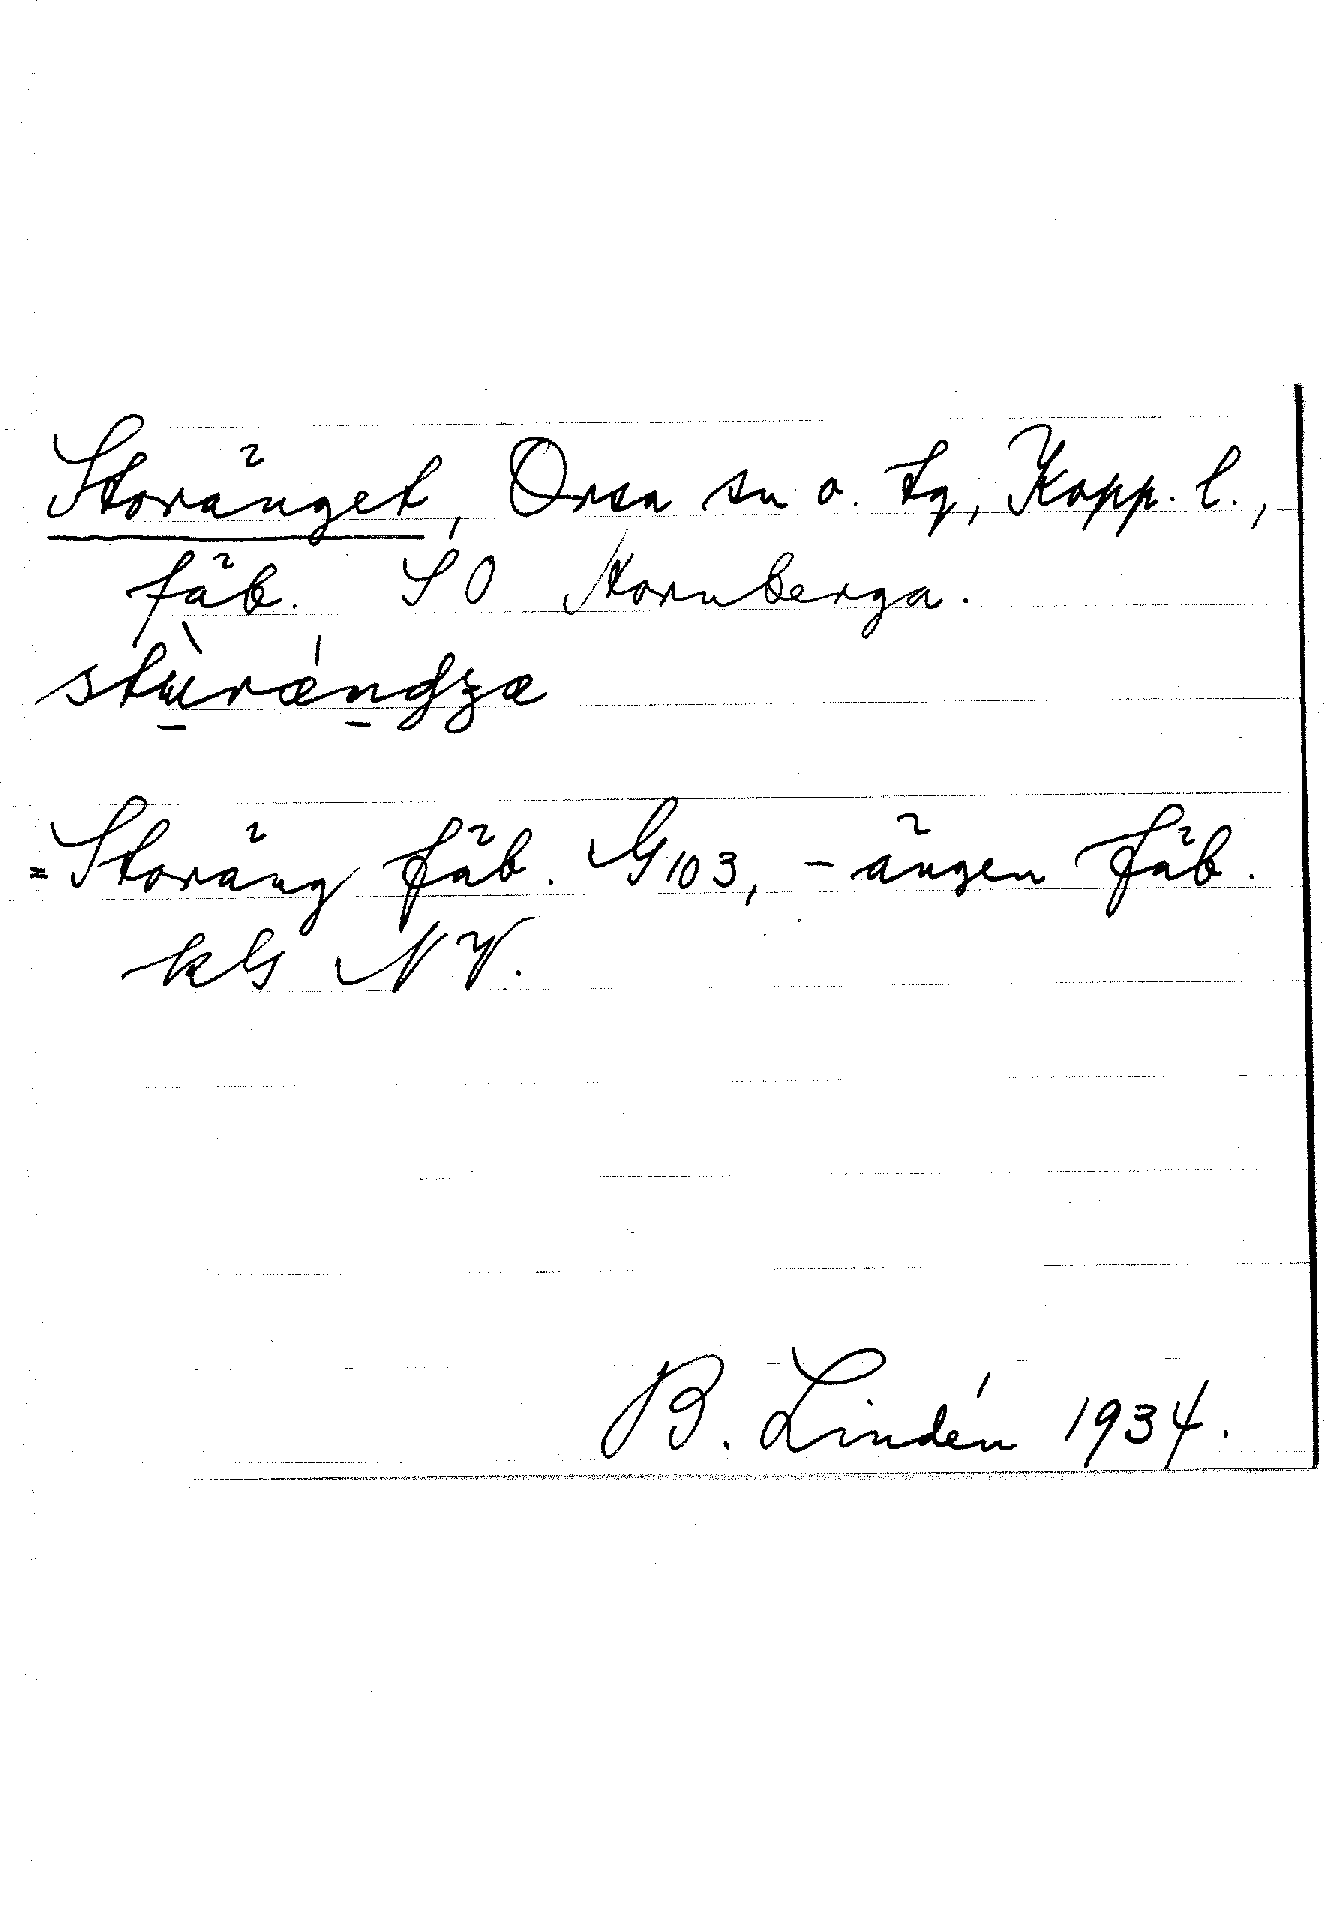 Storänget, Orsa sn o. tg, Kopp. l.,
fäb. SO Stornberga.
stùrǽndʒæ
= Storäng fäb. G103, -ängen fäb.
kG NV.
B. Lindén 1934.